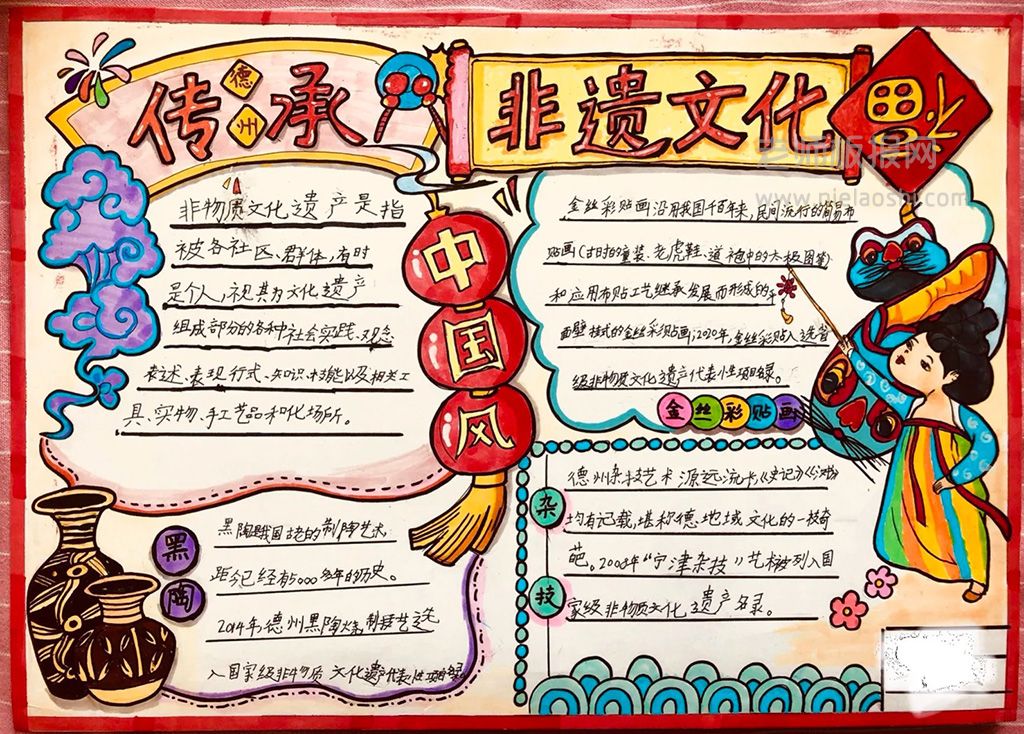 传承
德州
非遗文化
福
老师板报网
www.nielaoshi.com
非物质文化遗产是指
被各社区、群体，有时
是个人，视其为文化遗产
组成部分的各种社会实践、观念
表述、表现行式、知识、技能以及相关工
具、实物、手工艺品和化场所。
中国风
金丝彩贴画沿用我国千百年来，民间流行的简易布
贴画（古时的童装、老虎鞋、道袍中的太极图等）
和应用布贴工艺继承发展而形成的
画壁挂式的金丝彩贴画，2020年，金丝彩贴入选省
级非物质文化遗产代表性项目名录。
金丝彩贴画
黑陶
黑陶是我国古老的制陶艺术
距今已经有5000多年的历史。
2014年，德州黑陶烧制技艺选
入国家级非物质文化遗产代表性项目名录
杂技
德州杂技艺术源远流长，《史记》《汉书》
均有记载，堪称德地域文化的一枝奇
葩。2008年“宁津杂技”艺术被列入国
家级非物质文化遗产名录。